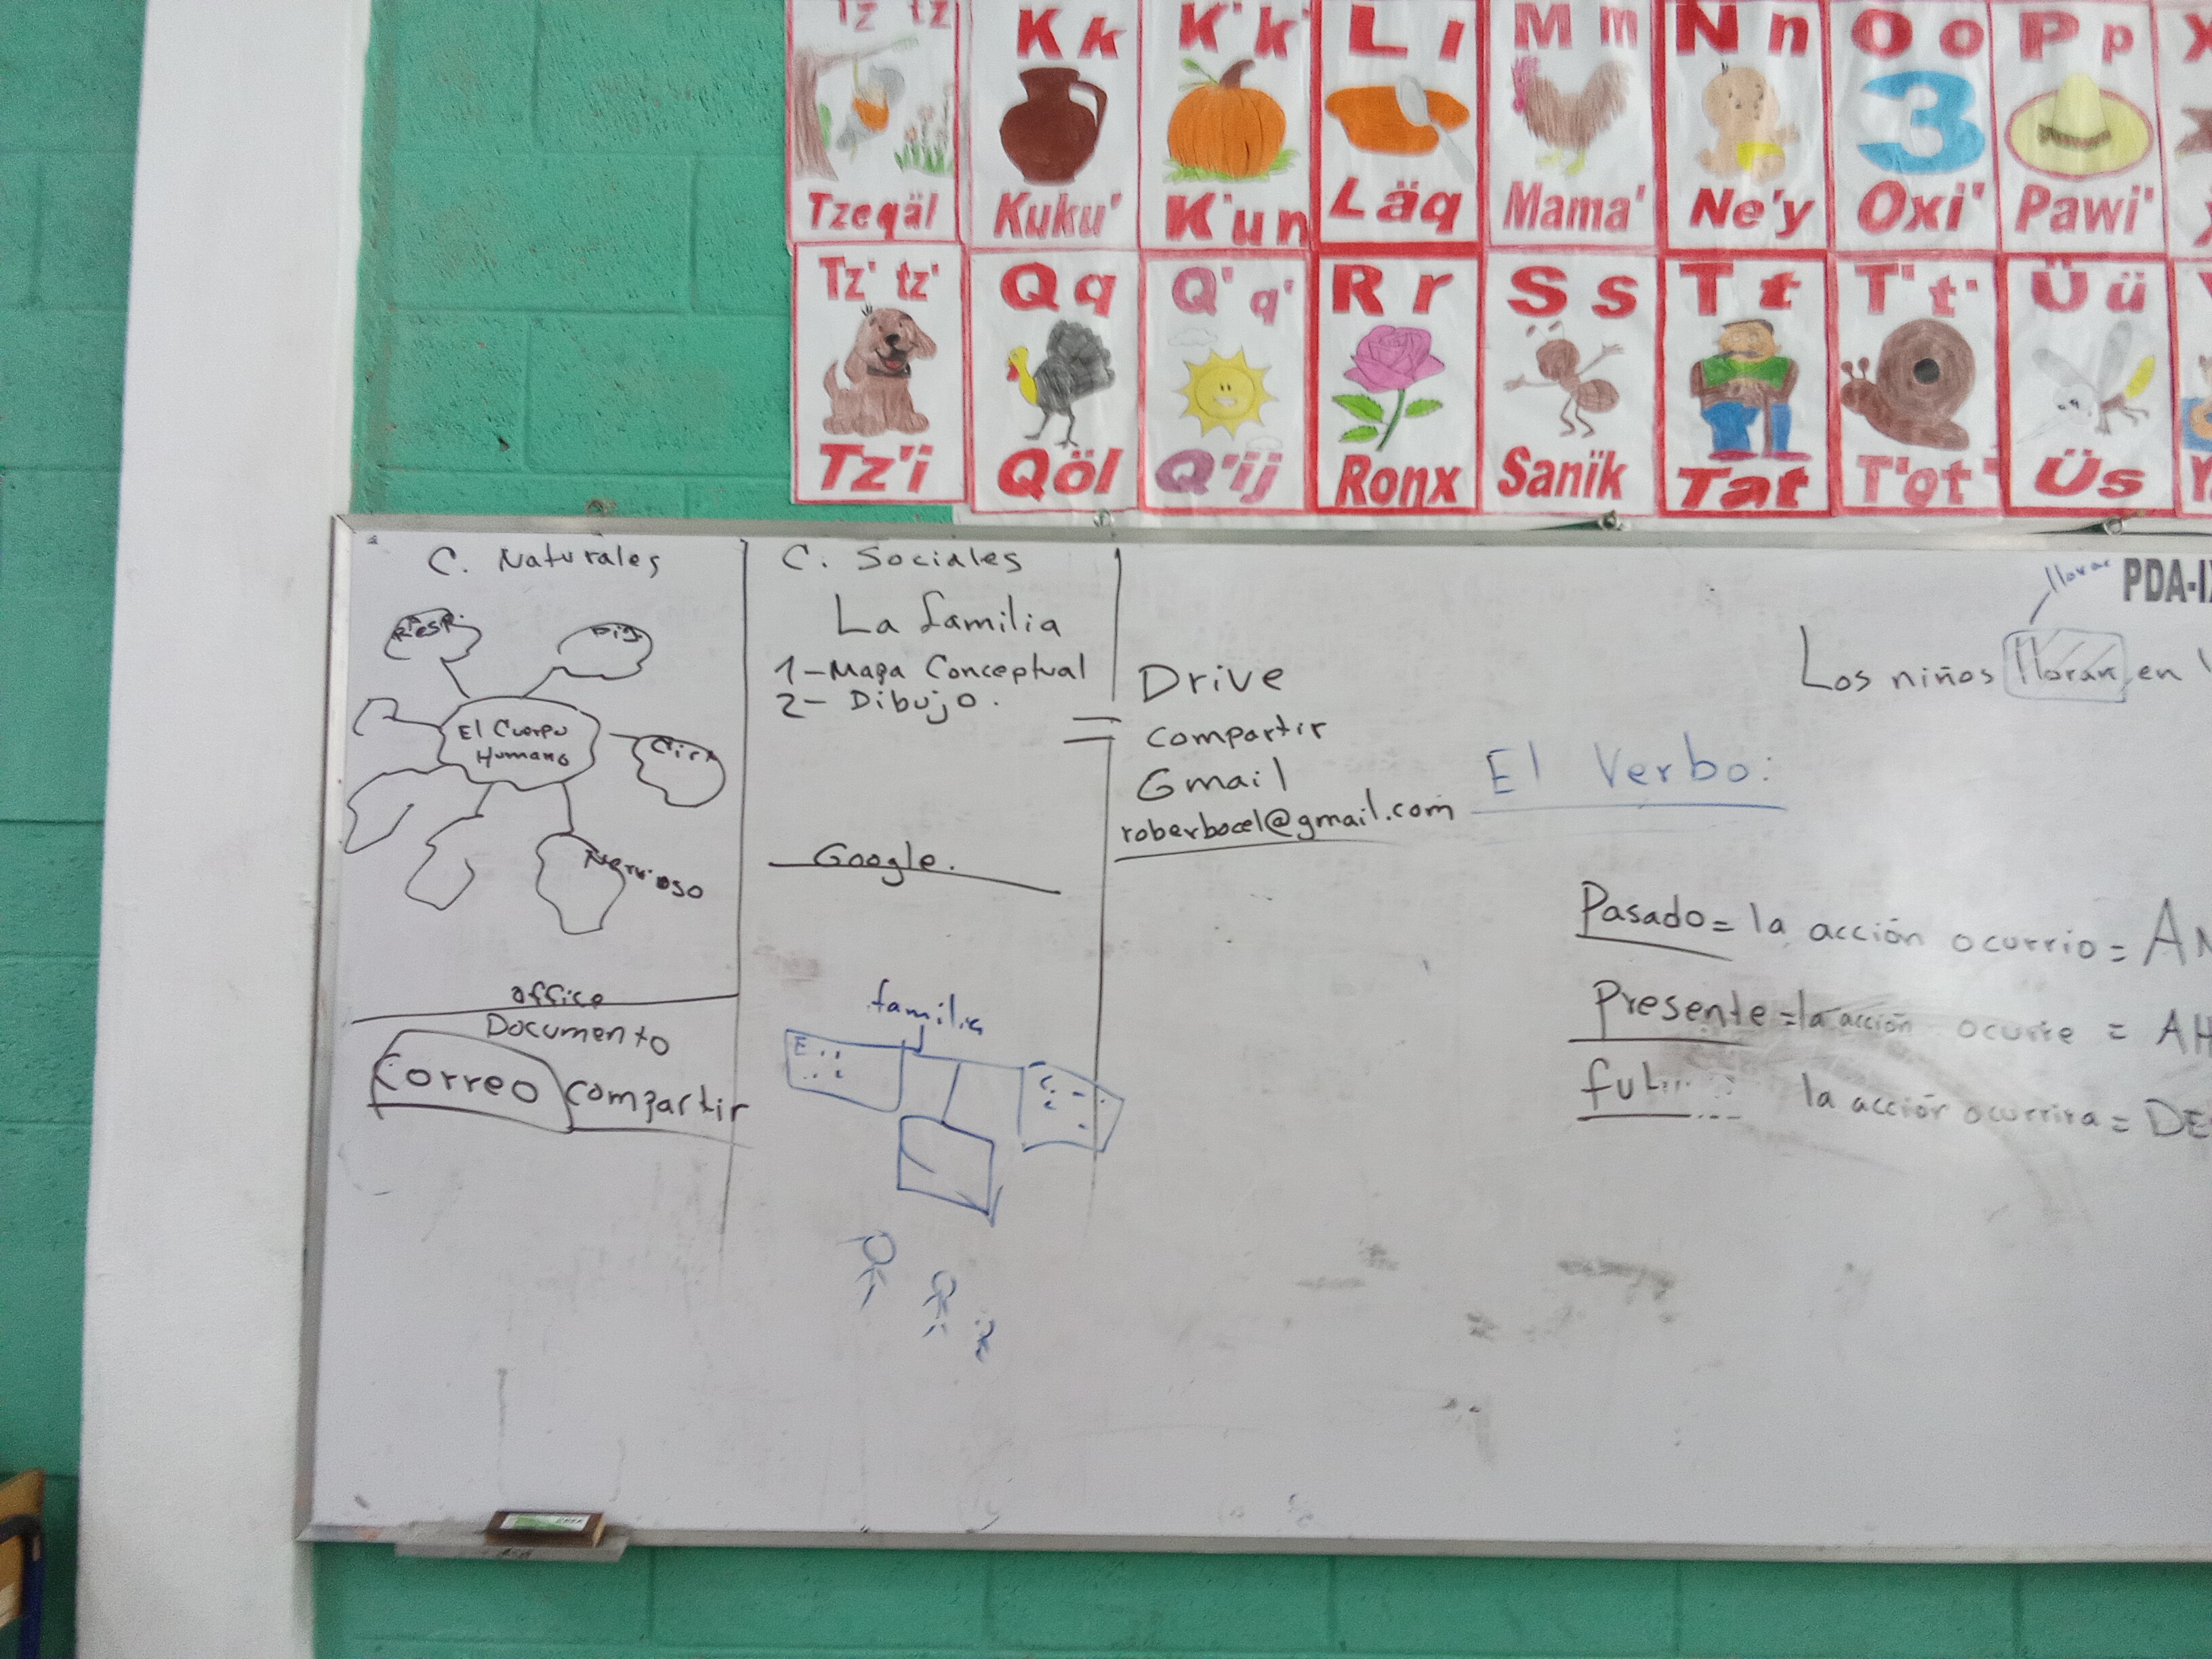 Tz tz
K k
K' k'
L l
M m
N n
O o
P p
Tzeqäl
Kuku'
K'un
Läq
Mama'
Ne'y
Oxi'
Pawi'
Tz' tz'
Q q
Q' q'
R r
S s
T t
T' t'
Ü ü
Tz'i
Qöl
Q'ij
Ronx
Sanïk
Tat
T'ot'
Üs
C. Naturales
Resp.
Dig.
El Cuerpo
Humano
Cir.
Nervioso
office
Documento
Correo compartir
C. Sociales
La familia
1-Mapa Conceptual
2- Dibujo.
Google.
familia
E
C.
Drive
compartir
Gmail
roberbocel@gmail.com
PDA-
llorar
Los niños lloran en
El Verbo:
Pasado= la acción ocurrio = AN
Presente =la acción ocurre = AH
fut la acción ocurrira = DE